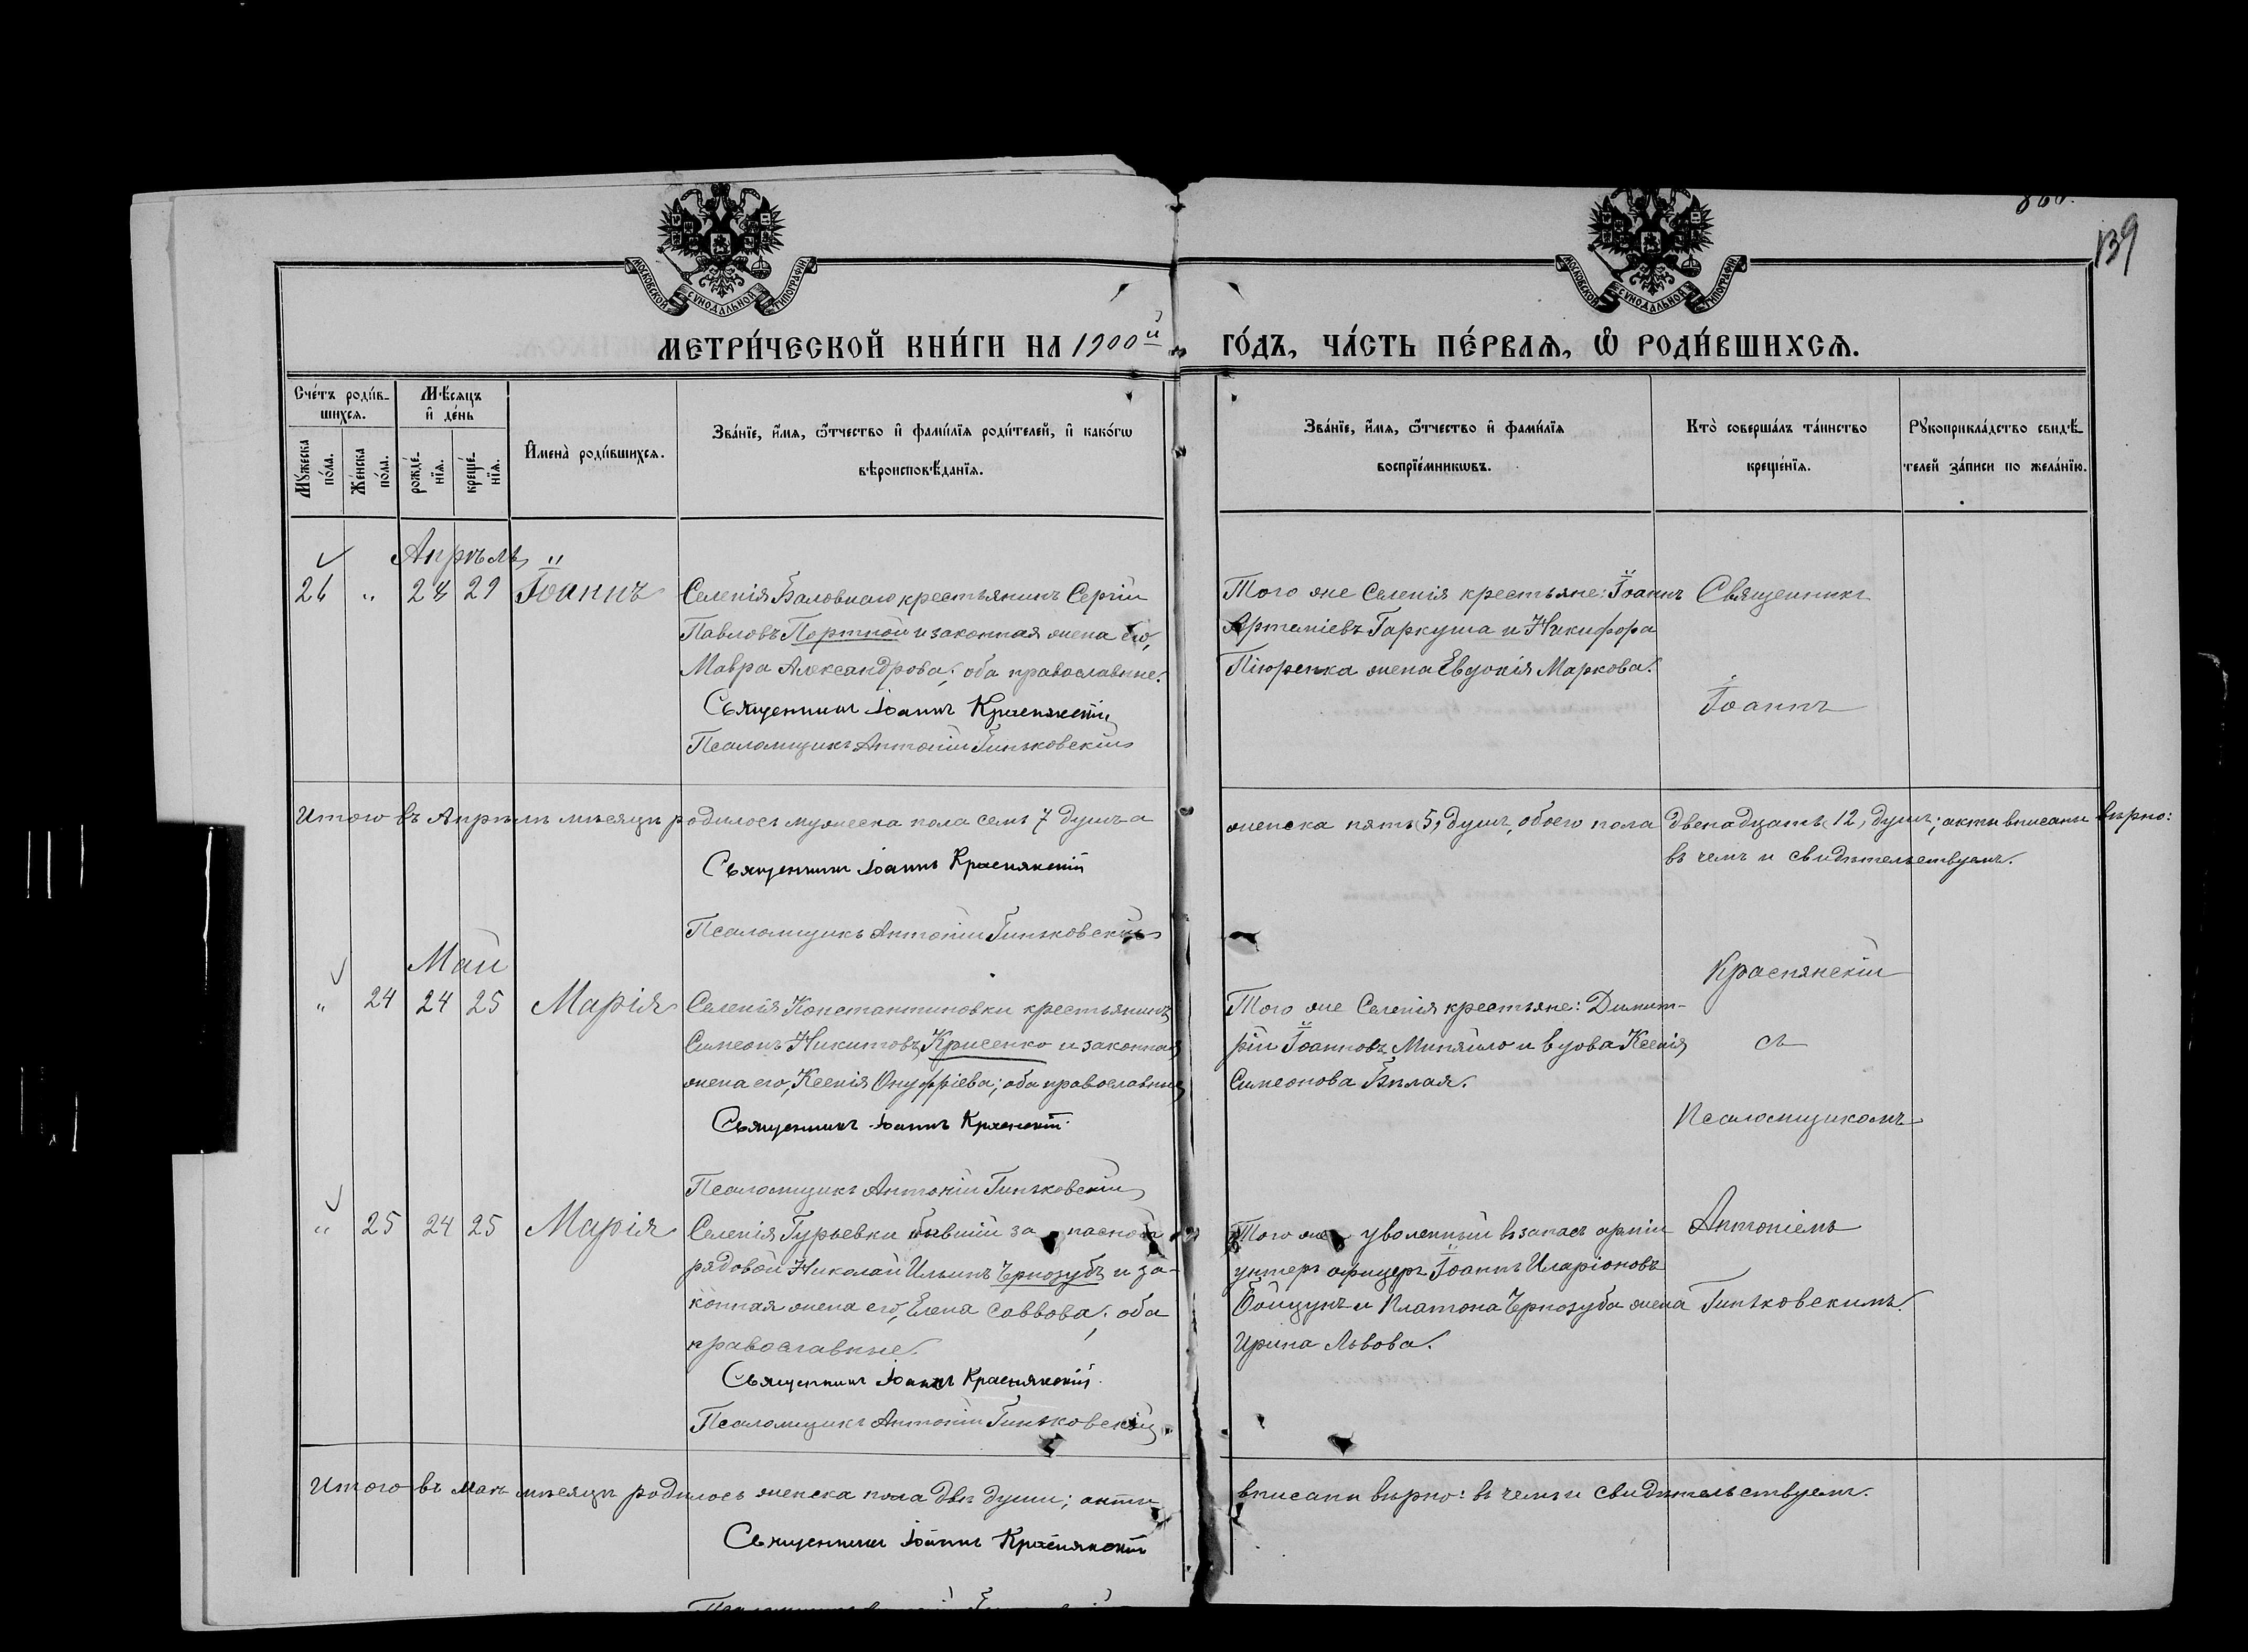 860.
139
МОСКОВСКОЙ СѴНОДАЛЬНОЙ ТИПОГРАФІИ
МОСКОВСКОЙ СѴНОДАЛЬНОЙ ТИПОГРАФІИ
МЕТРИ́ЧЕСКОЙ КНИ́ГИ НА 1900й ГО́ДЪ, ЧА́СТЬ ПЕ́РВАѦ, Ѡ РОДИ́ВШИХСѦ.
Сче́тъ роди́вшихсѧ.
Мꙋ́жеска по́ла.
Же́нска по́ла.
Мѣ́сѧцъ и҆ де́нь
рожде́нїѧ.
креще́нїѧ.
И҆мена̀ роди́вшихсѧ.
Зва́нїе, и҆́мѧ, ѻ҆́тчество и҆ фами́лїѧ роди́телей, и҆ како́гѡ
вѣроисповѣ́данїѧ.
Зва́нїе, и҆́мѧ, ѻ҆́тчество и҆ фами́лїѧ
воспрїе́мникѡвъ.
Кто̀ соверша́лъ та́инство
креще́нїѧ.
Рꙋкоприкла́дство свидѣ́-
телей за́писи по жела́нїю.
Апрѣль
26 " 28 29 Іоаннъ
Селенія Баловнаго крестьянинъ Сергій
Павловъ Портной и законная жена его,
Мавра Александрова; оба православные.
Священникъ Іоаннъ Краснянскій
Псаломщикъ Антоній Гиньковскій
Того же селенія крестьяне: Іоаннъ
Артеміевъ Гаркуша и Никифора
Піюренка жена Евдокія Маркова.
Священникъ
Іоаннъ
Итого въ Апрѣлѣ мѣсяцѣ родилось мужеска пола семь 7 душъ а
женска пять 5, душъ, обоего пола двенадцать 12, душъ; акты вписаны вѣрно:
въ чемъ и свидѣтельствуемъ.
Священникъ Іоаннъ Краснянскій
Псаломщикъ Антоній Гиньковскій
Май
" 24 24 25 Марія
Селенія Константиновки крестьянинъ
Симеонъ Никитовъ Крисенко и законная
жена его, Ксенія Онуфріева; оба православные
Священникъ Іоаннъ Краснянскій
Псаломщикъ Антоній Гиньковскій
Того же селенія крестьяне: Димит-
рій Іоанновъ Миняйло и вдова Ксенія
Симеонова Бѣлая.
Краснянскій
съ
Псаломщикомъ
" 25 24 25 Марія
Селенія Гурьевки бывшій запасной
рядовой Николай Ильинъ Чернозубъ и за-
конная жена его, Елена Саввова; оба
православные.
Священникъ Іоаннъ Краснянскій
Псаломщикъ Антоній Гиньковскій
Того же уволенный въ запасъ арміи
унтеръ офицеръ Іоаннъ Иларіоновъ
Бойцунъ и Платона Чернозуба жена
Ирина Львова.
Антоніемъ
Гиньковскимъ.
Итого въ маѣ мѣсяцѣ родилось женска пола двѣ души; акты
вписаны вѣрно: въ чемъ и свидѣтельствуемъ.
Священникъ Іоаннъ Краснянскій